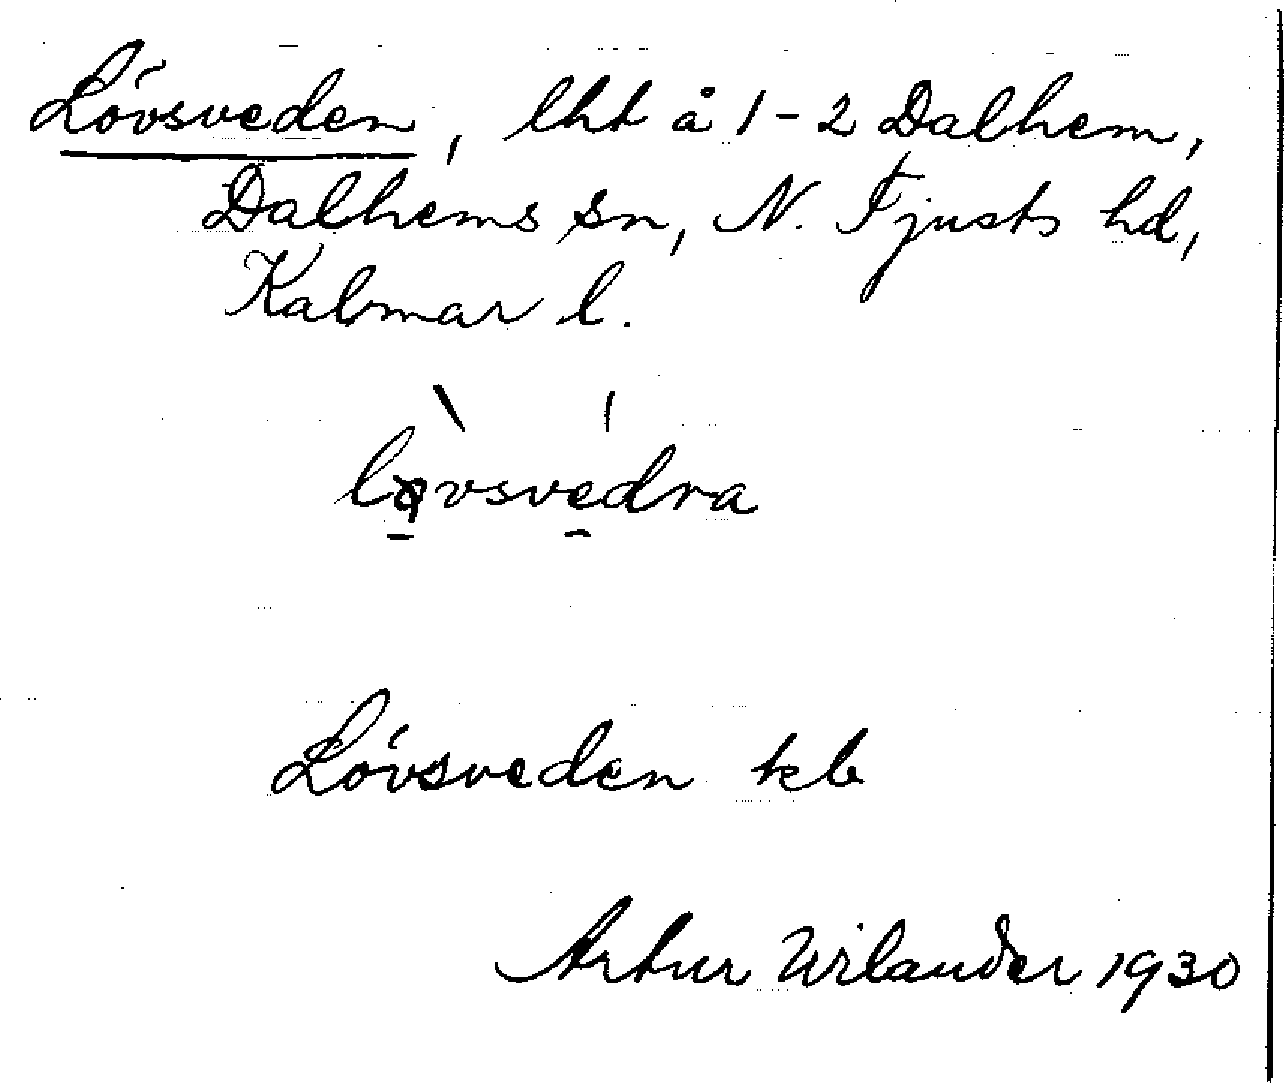 Lövsveden, lht å 1-2 Dalhem,
Dalhems sn, N. Tjusts hd,
Kalmar l.
Lövsveden kb
Artur Wilander 1930